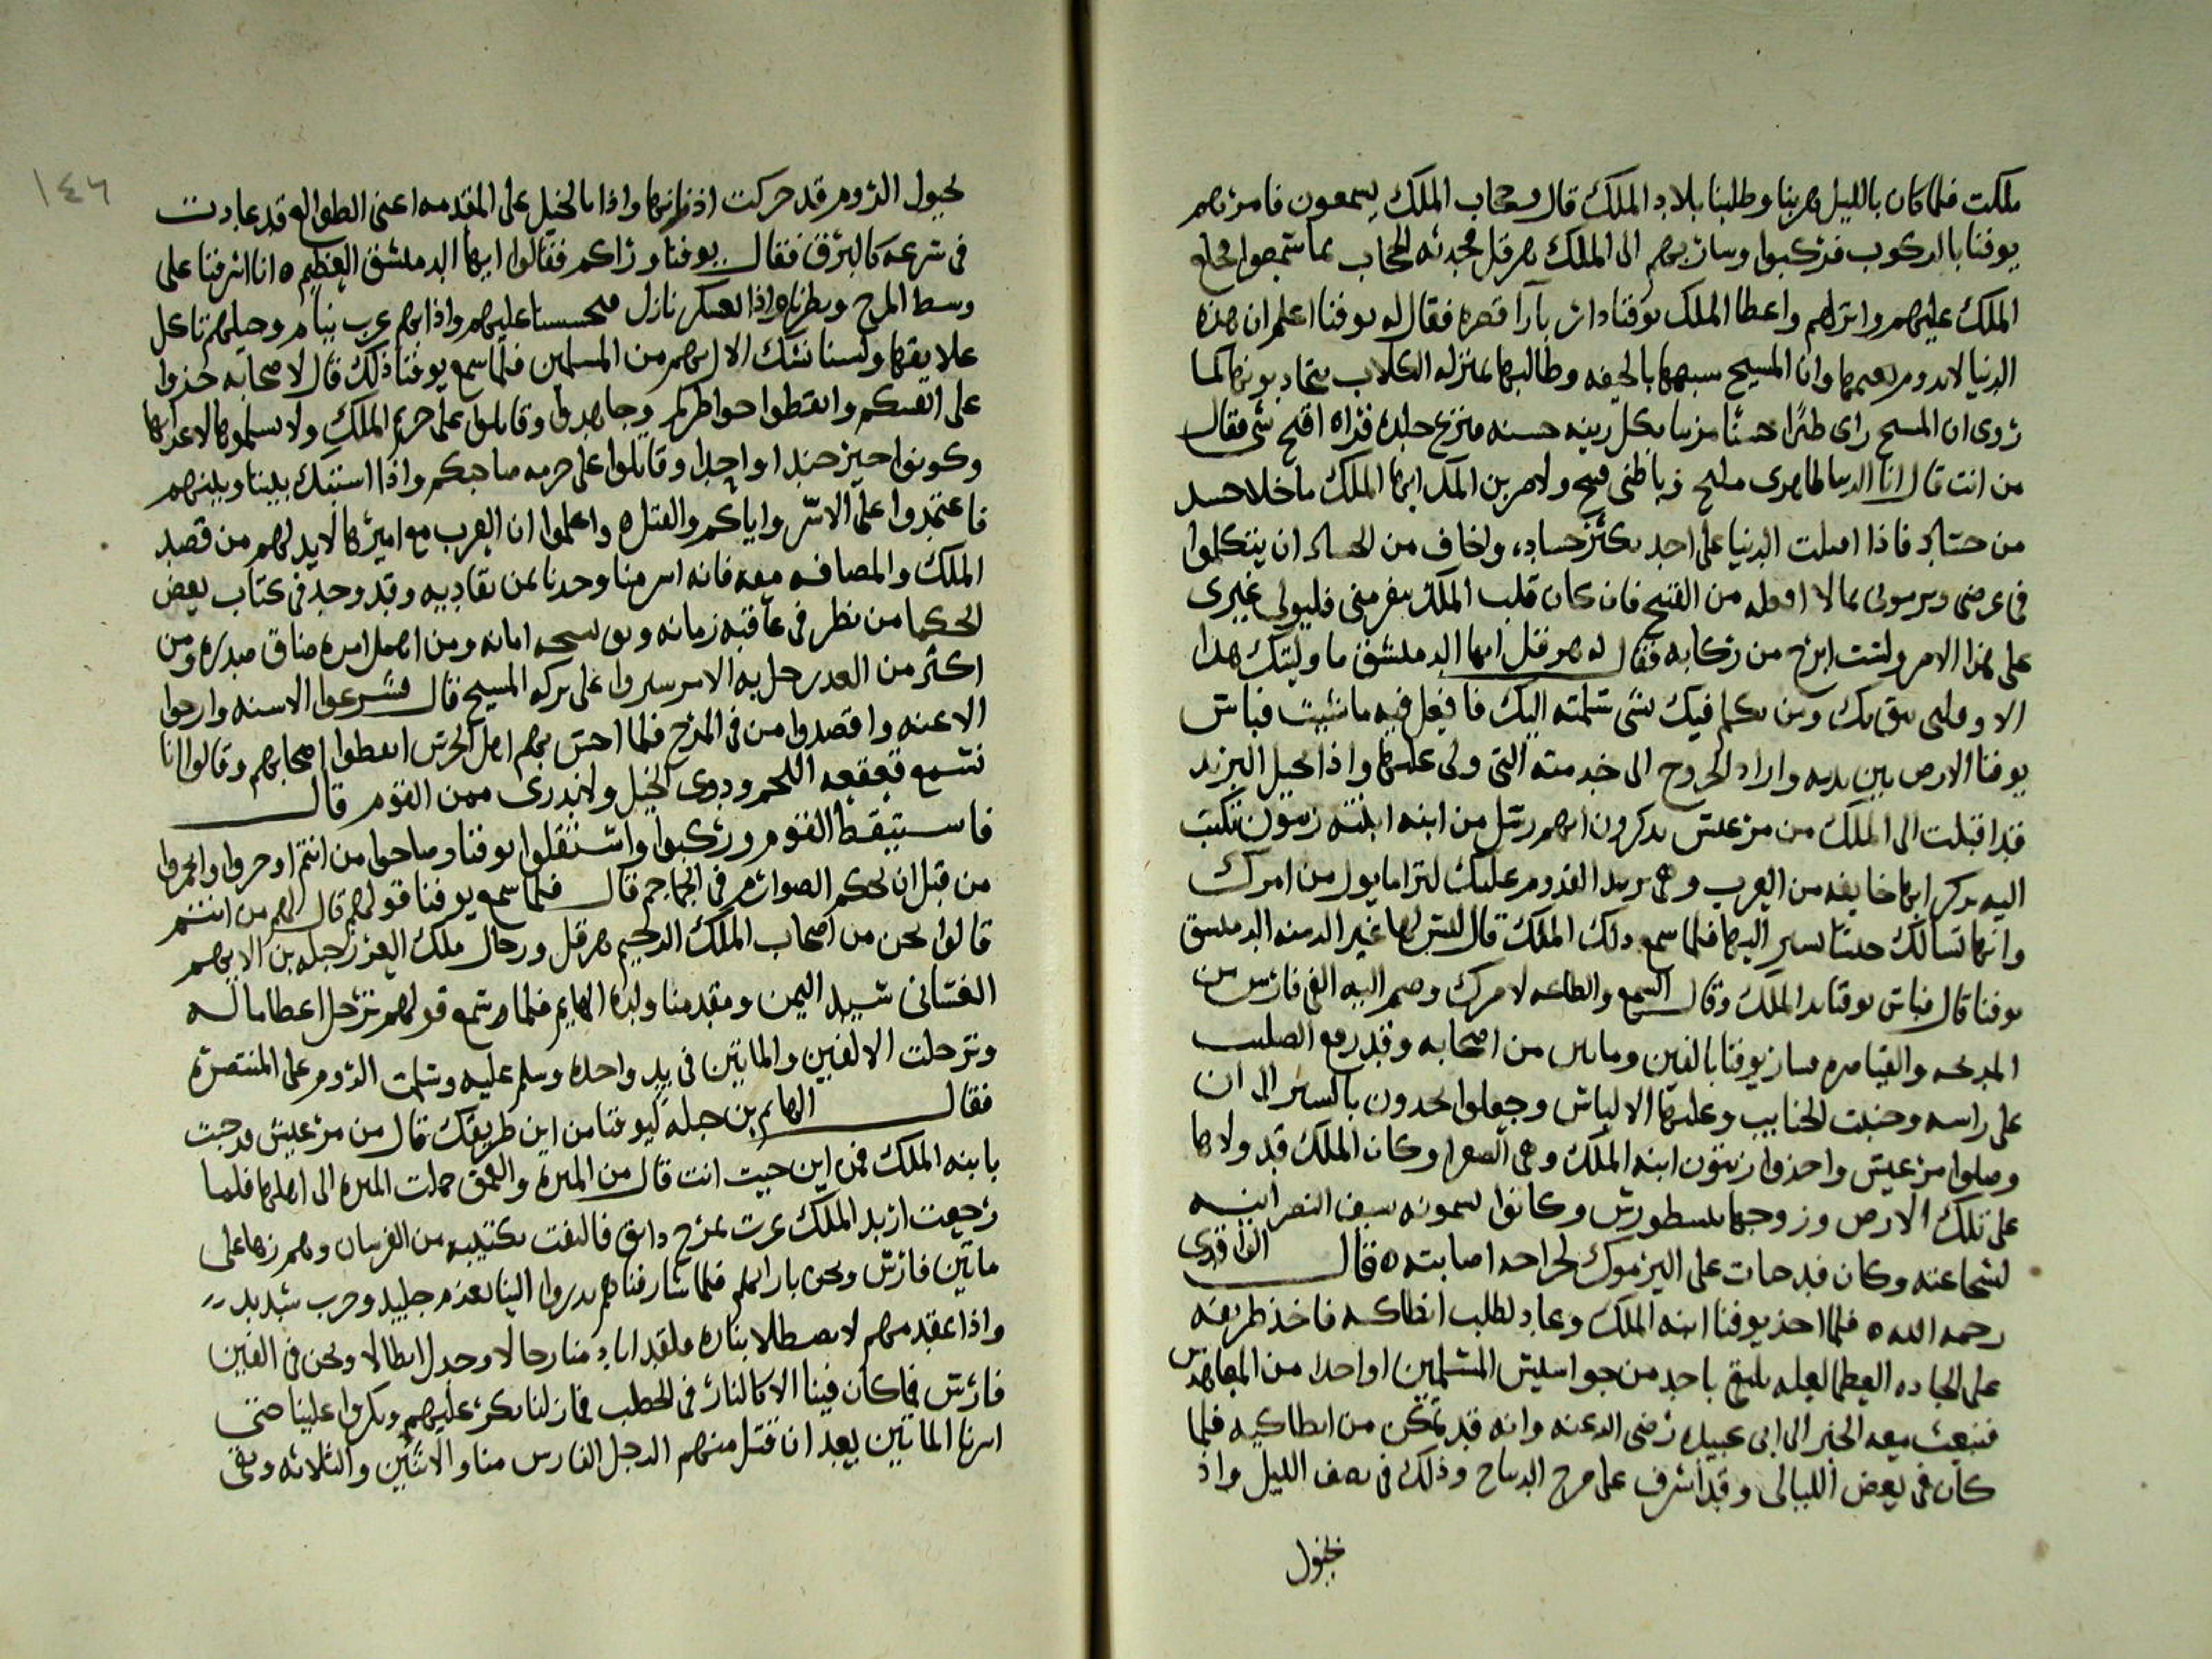 ملكت فلما كان بالليل هربنا وطلبنا بلاد الملك قال وحجاب الملك يسمعون فامرهم
يوقنا بالركوب فركبوا وسار بهم الى الملك هرقل فحدثه الحجاب بما سمعوا فخلع
الملك عليهم وانزلهم واعطا الملك يوقنا دار بازآ قصره فقال له يوقنا اعلم ان هذه
الدنيا لا يدوم نعيمها وان المسيح شبهها بالجيفه وطالبها بمنزله الكلاب يتجاذبونها كما
روى ان المسيح راى طيرًا حسنًا مزينا بكل زينه حسنه فنزع جلده فراه اقبح شى فقال
من انت قال انا الدنيا ظاهرى مليح وباطنى قبيح ايها الملك ما خلا جسد
من حسّاد فاذا اقبلت الدنيا على احد يكثر حساده واخاف من الحساد ان يتكلموا
فى عرضى ويرمونى بما لا افعله من القبيح فان كان قلب الملك ينفر منى فليولى غيرى
على هذا الامر ولست ابرح من ركابه فقال له هرقل ايها الدمشق ما وليتك هذا
الا وقلبى يثق بك ومن تكلم فيك بشى سلمته اليك فافعل فيه ما شيت فباس
يوقنا الارض بين يديه واراد الخروج الى خدمته التى ولى عليها واذا بخيل البريد
قد اقبلت الى الملك من مرعش يذكرون انهم رسل من ابنه ابنته زيتون
اليه يذكر انها خايفه من العرب وهى تريد القدوم عليك لترا ما يول من امرك
وانها تسالك جيشًا يسير اليها فلما سمع ذلك الملك قال ليس لها غير الدمشق
يوقنا قال فباس يوقنا يد الملك وقال السمع والطاعه لامرك وضم اليه الفى فارس من
المدبجه والقياصره فسار يوقنا بالفين ومايتى من اصحابه وقد رفع الصليب
على راسه وجنبت الجنايب وعليها الالباس وجعلوا يجدون بالسير الى ان
وصلوا مرعش واخذوا زيتون ابنه الملك وهى الصغرا وكان الملك قد ولاها
على تلك الارض وزوجها بنسطورس وكانوا يسمونه سيف النصرانيه
لشجاعته وكان قد مات على اليرموك لجراحه اصابته ٥ قال الواقدى
رحمه الله ٥ فلما اخذ يوقنا ابنه الملك وعاد يطلب انطاكيه فاخذ طريقه
على الجاده العظما لعله يلتقى باحد من جواسيس المسلمين او احدا من المعاهدين
فيبعث معه الخبر الى ابى عبيده رضى الله عنه وانه قد تمكن من انطاكيه فلما
كان فى بعض الليالى وقد اشرف على مرج الديباج وذلك فى نصف الليل واذ
بخيول
١٤٦
بخيول الروم قد حركت اذانها واذا بالخيل على المقدمه اعنى الطوالع قد عادت
فى سرعه كالبرق فقال يوقنا ورآكم فقالوا ايها الدمشق العظيم ٥ انا اشرفنا على
وسط المرج ونظرنا واذا بعسكر نازل فتحسسنا عليهم واذا بهم عرب نيام وخيلهم تاكل
علايقها ولسنا نشك الا انهم من المسلمين فلما سمع يوقنا ذلك قال لاصحابه خذوا
على انفسكم وايقظوا خواطركم وجاهدوا وقاتلوا على حرم الملك ولا تسلموها لاعدايها
وكونوا خير جند اواجدا وقاتلوا على حرمه صاحبكم واذا اشتبك بيننا وبينهم
فاعتمدوا على الاسر واياكم والقتل ٥ واعلموا ان العرب مع اميرها لابد لهم من قصد
الملك والمصافه معه فانه اسر منا وجدنا من نفاديه وقد وجد فى كتاب بعض
الحكما من نظر فى عاقبه زمانه امانه ومن اهمل امره ضاق صدره ومن
اكثر من الغدر حل به الامر سيروا على بركه المسيح قال فشرعوا الاسنه وارخوا
الاعنه وقصدوا من فى المرج فلما احس بهم اهل الحرس ايقظوا اصحابهم وقالوا انا
نسمع قعقعه اللجم ودوى الخيل ولا ندرى ممن القوم قال
فاستيقظ القوم وركبوا واستقبلوا يوقنا وصاحوا من انتم
من قبل ان نحكم الصوارم فى الجماجم قال فلما سمع يوقنا قولهم قال لهم من انتم
قالوا نحن من اصحاب الملك الرحيم هرقل ورجال ملك العرب جبله بن الايهم
الغسانى سيد اليمن ومقدمنا ولده الهايم فلما سمع قولهم ترجل اعظاما له
وترجلت الالفين والمايتين فى يد واحده وسلم عليه وسلمت الروم على المتنصره
فقال الهايم بن جبله ليوقنا من اين طريقك قال من مرعش قد جيت
بابنه الملك فمن اين جيت انت قال من الميره والعمق حملت الميره الى اهلها فلما
رجعت اريد الملك عبرت بمرج دابق فالتقت بكتيبه من الفرسان وهم زها على
مايتين فارس ونحن بازائهم فلما شارفناهم بدروا الينا بعزم جليد وحرب شديد
واذا مقدمهم لا يصطلا بناره ولقد اباد منا رجالا وجدل ابطالا ونحن فى الفين
فارس فما كان فينا الا كالنار فى الحطب فما زلنا نكر عليهم ويكروا علينا حتى
اسرنا المايتين بعد ان قتل منهم الرجل الفارس منا والاثنين والثلاثه وبقى